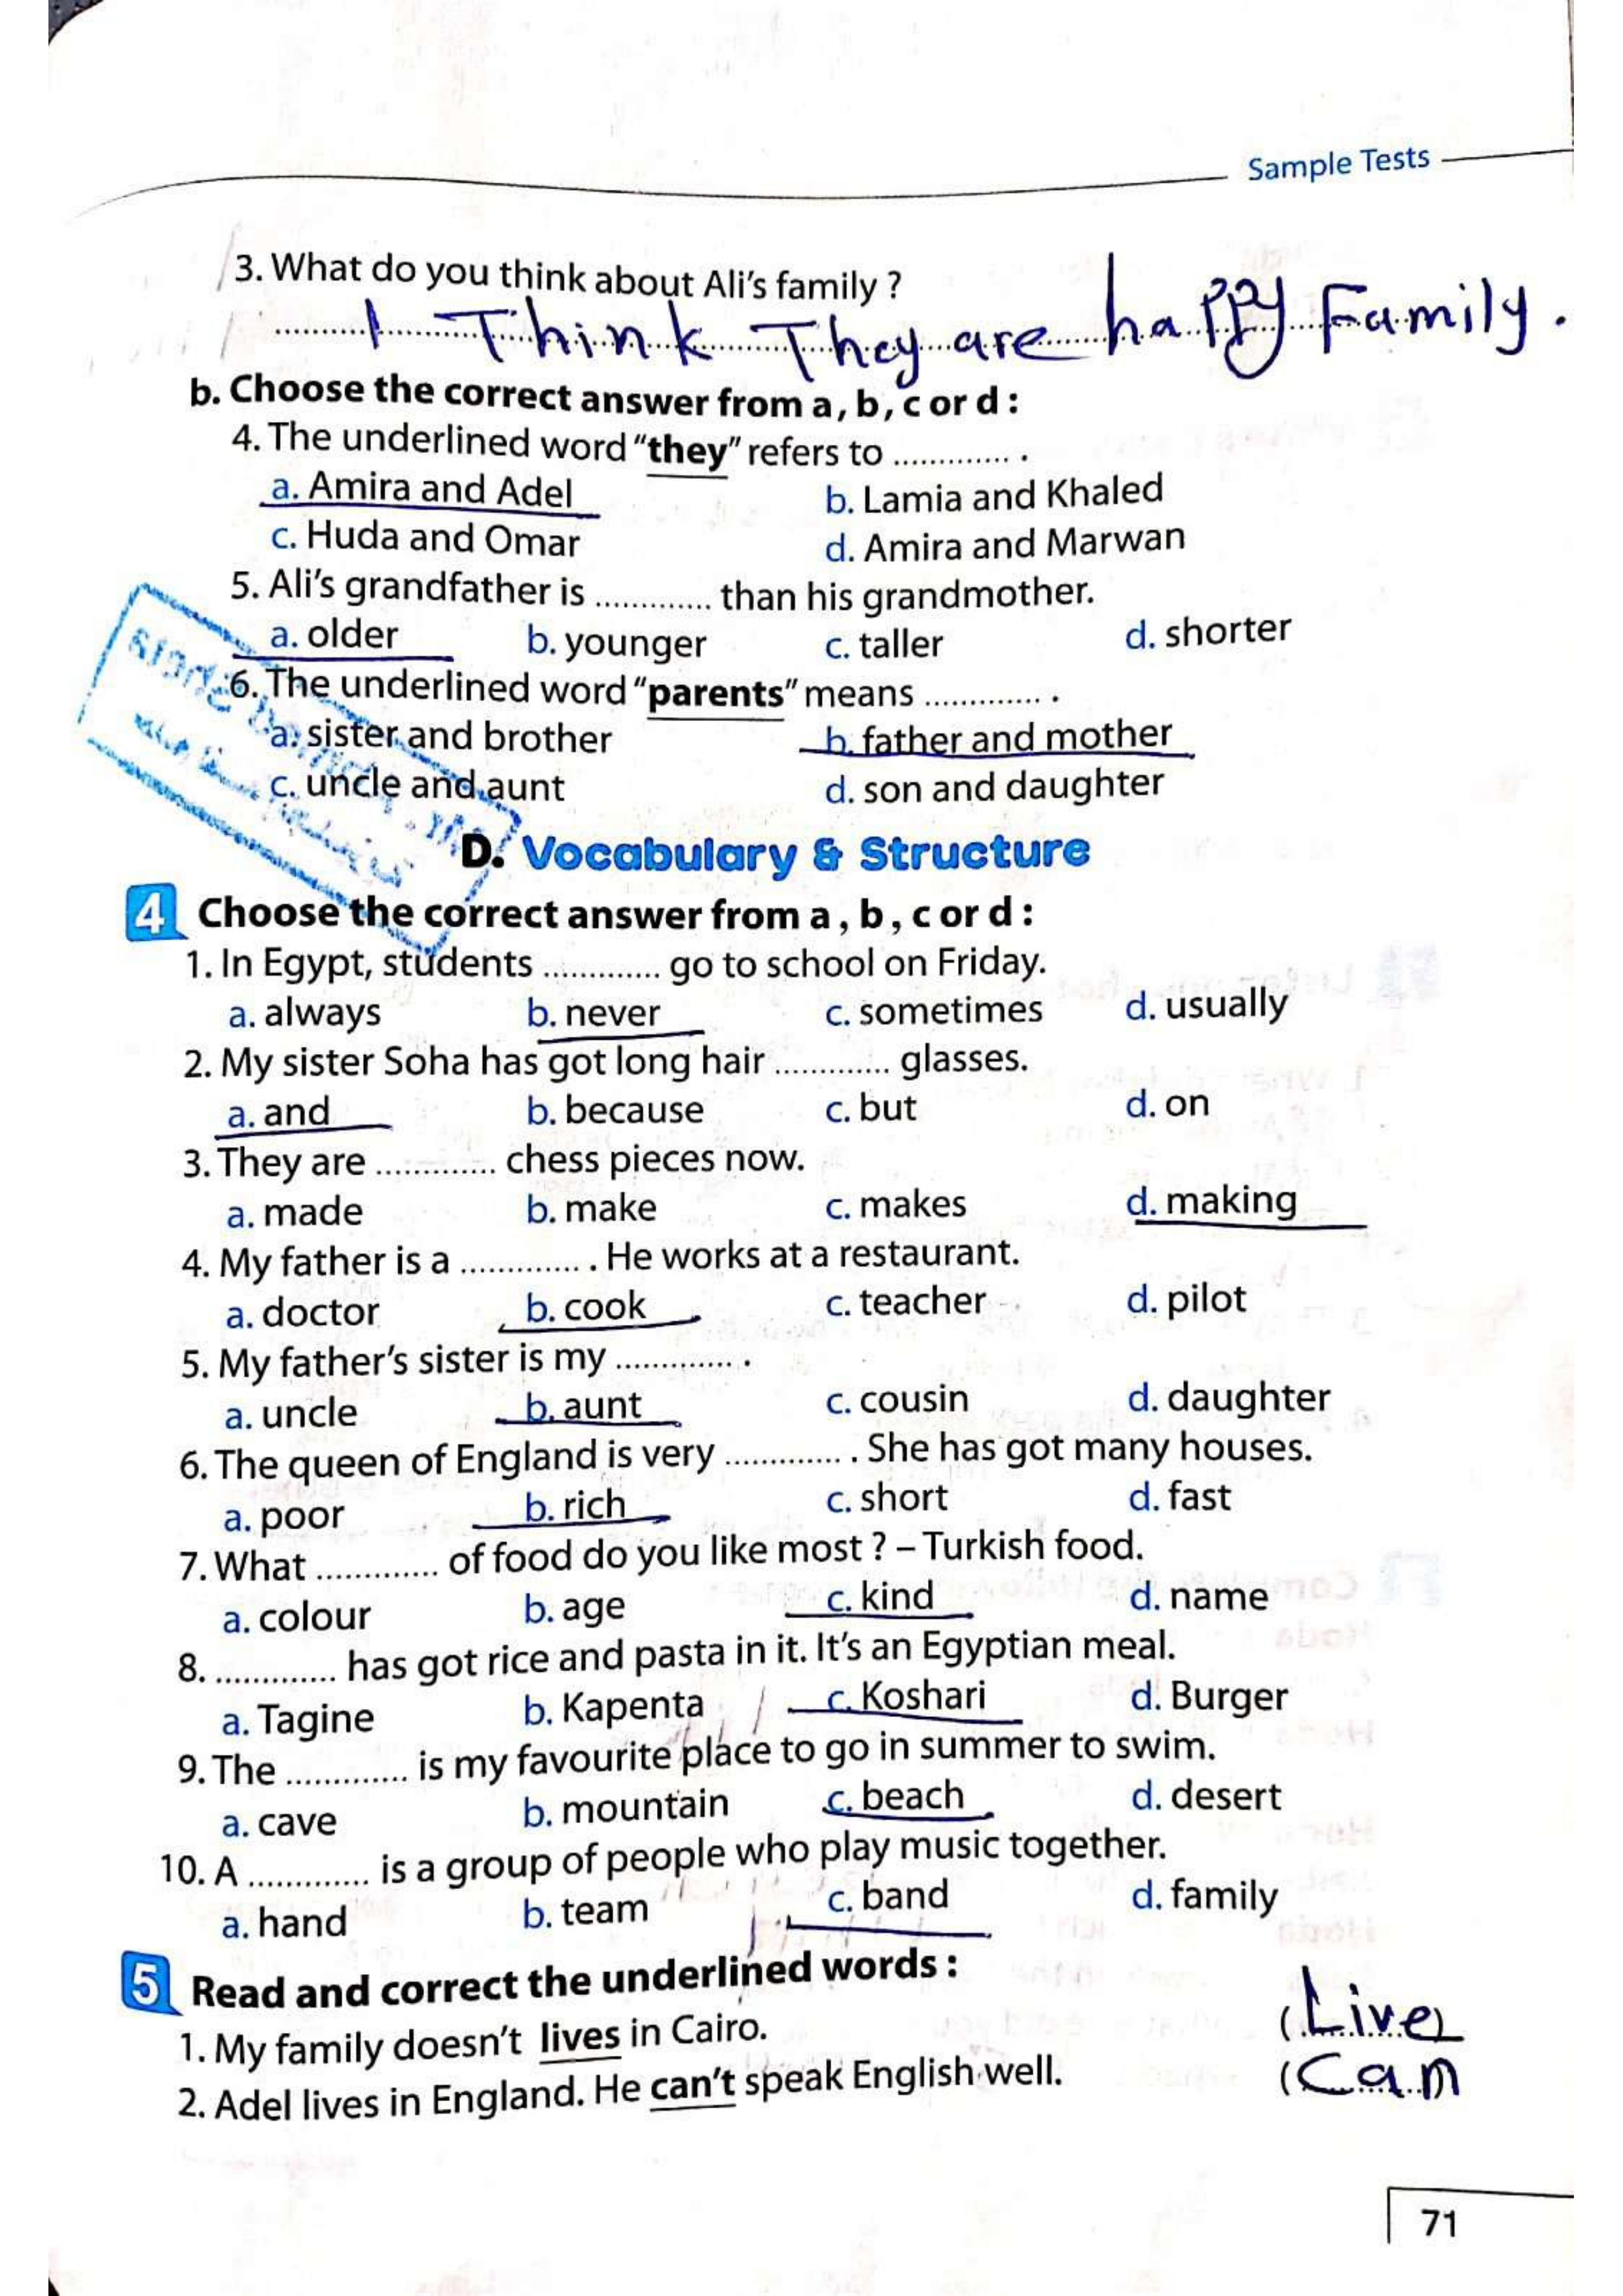 Sample Tests
3. What do you think about Ali's family ?
I Think They are happy Family.
b. Choose the correct answer from a, b, c or d :
4. The underlined word "they" refers to ............. .
a. Amira and Adel b. Lamia and Khaled
c. Huda and Omar d. Amira and Marwan
5. Ali's grandfather is ............. than his grandmother.
a. older b. younger c. taller d. shorter
6. The underlined word "parents" means ............. .
a. sister and brother b. father and mother
c. uncle and aunt d. son and daughter
D. Vocabulary & Structure
4 Choose the correct answer from a , b , c or d :
1. In Egypt, students ............. go to school on Friday.
a. always b. never c. sometimes d. usually
2. My sister Soha has got long hair ............. glasses.
a. and b. because c. but d. on
3. They are ............. chess pieces now.
a. made b. make c. makes d. making
4. My father is a ............. . He works at a restaurant.
a. doctor b. cook c. teacher d. pilot
5. My father's sister is my ............. .
a. uncle b. aunt c. cousin d. daughter
6. The queen of England is very ............. . She has got many houses.
a. poor b. rich c. short d. fast
7. What ............. of food do you like most ? – Turkish food.
a. colour b. age c. kind d. name
8. ............. has got rice and pasta in it. It's an Egyptian meal.
a. Tagine b. Kapenta c. Koshari d. Burger
9. The ............. is my favourite place to go in summer to swim.
a. cave b. mountain c. beach d. desert
10. A ............. is a group of people who play music together.
a. hand b. team c. band d. family
5 Read and correct the underlined words :
1. My family doesn't lives in Cairo. (Live)
2. Adel lives in England. He can't speak English well. (Can
71